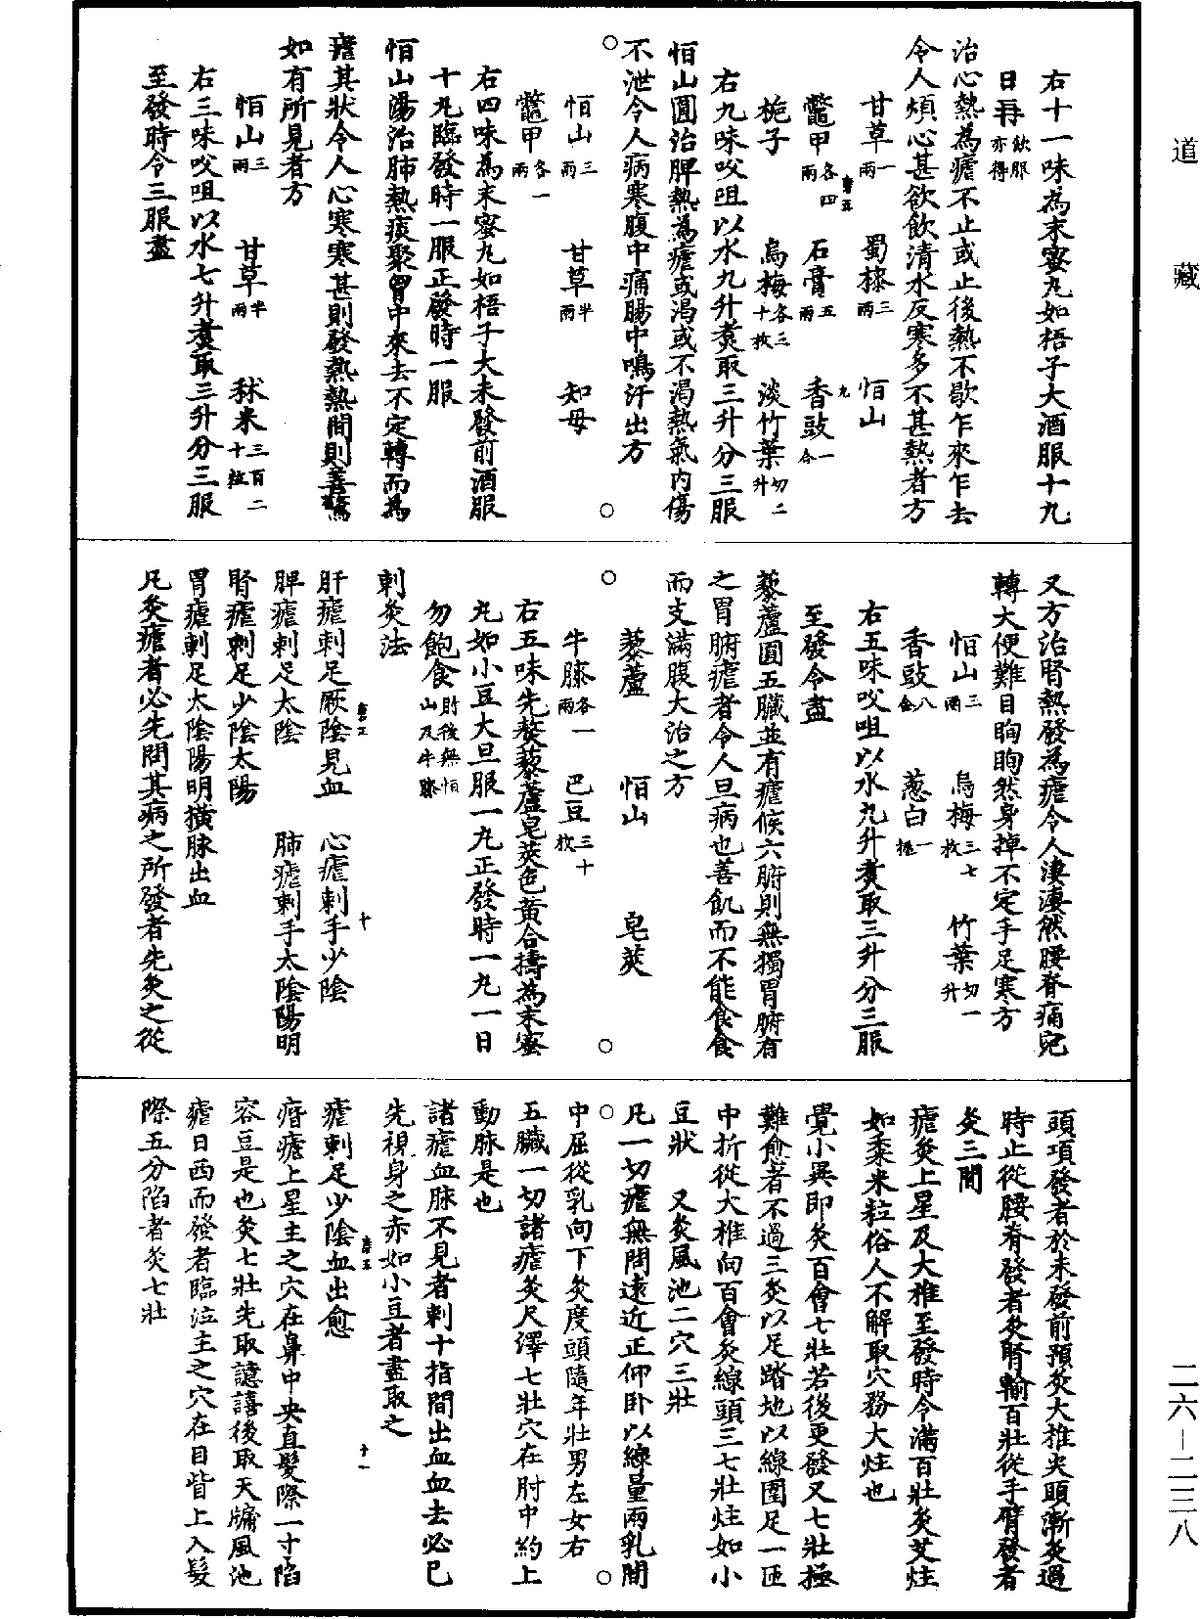 右十一味為末蜜丸如梧子大酒服十丸
日再飲服亦得
治心熱為瘧不止或止後熱不歇乍來乍去
令人煩心甚欲飲清水反寒多不甚熱者方
甘草一兩 蜀𣾰三兩 恒山
鼈甲各四兩 石膏五兩 香豉一合
梔子 烏梅各三十枚 淡竹葉切二升
右九味㕮咀以水九升煑取三升分三服
恒山圓治脾熱為瘧或渴或不渴熱氣内傷
不泄令人病寒腹中痛腸中鳴汗出方
恒山三兩 甘草半兩 知母
鼈甲各一兩
右四味為末蜜丸如梧子大未發前酒服
十丸臨發時一服正發時一服
恒山湯治肺熱痰聚胷中來去不定轉而為
瘧其狀令人心寒寒甚則發熱熱間則善驚
如有所見者方
恒山三兩 甘草半兩 秫米三百二十粒
右三味㕮咀以水七升煑取三升分三服
至發時令三服盡
又方治腎熱發為瘧令人凄凄然腰脊痛宛
轉大便難目眴眴然身掉不定手足寒方
恒山三兩 烏梅三七枚 竹葉切一升
香豉八合 葱白一握
右五味㕮咀以水九升煑取三升分三服
至發令盡
藜蘆圓五臟並有瘧候六腑則無獨胃腑有
之胃腑瘧者令人旦病也善飢而不能食食
而支滿腹大治之方
藜蘆 恒山 皂莢
牛膝各一兩 巴豆三十枚
右五味先熬藜蘆皂莢色黃合擣為末蜜
丸如小豆大旦服一丸正發時一丸一日
勿飽食肘後無恒山及牛膝
刺灸法
肝瘧刺足厥陰見血 心瘧刺手少陰
脾瘧刺足太陰 肺瘧刺手太陰陽明
腎瘧刺足少陰太陽
胃瘧刺足太陰陽明橫脉出血
凡灸瘧者必先問其病之所發者先灸之從
頭項發者於未發前預灸大椎尖頭漸灸過
時止從腰脊發者灸腎輸百壯從手臂發者
灸三間
瘧灸上星及大椎至發時令滿百壯灸艾炷
如黍米粒俗人不解取穴務大炷也
覺小異即灸百會七壯若後更發又七壯極
難愈者不過三灸以足踏地以線圍足一匝
中折從大椎向百會灸線頭三七壯炷如小
豆狀 又灸風池二穴三壯
凡一切瘧無問遠近正仰卧以線量兩乳間
中屈從乳向下灸度頭隨年壯男左女右
五臟一切諸瘧灸尺澤七壯穴在肘中約上
動脉是也
諸瘧血脉不見者刺十指間出血血去必已
先視身之赤如小豆者盡取之
瘧刺足少陰血出愈
痎瘧上星主之穴在鼻中央直髮際一寸陷
容豆是也灸七壯先取譩譆後取天牖風池
瘧日西而發者臨泣主之穴在目眥上入髮
際五分陷者灸七壯
道藏
二六－二三八